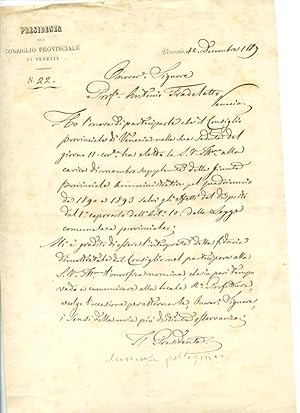 PRESIDENZA
DEL
CONSIGLIO PROVINCIALE
DI VENEZIA
N. 22.
Venezia, 12 Decembre 1889
Onorev. Signore
Prof. Antonio Fradeletto
Venezia
Ho l'onore di parteciparle che il Consiglio
Provinciale di Venezia nella sua seduta del
giorno 11 corr. ha eletto la S.V. Ill.ma alla
carica di membro supplente della Giunta
Provinciale Amministrativa pel quadriennio
da 1890 a 1893 salvi gli effetti del disposto
dal 1° capoverso dell'art. 10 della Legge
comunale e provinciale.
Mi è gradito di essere interprete della fiducia
dimostrata dal Consiglio nel partecipare alla
S.V. Ill.ma l'onorifica nomina che in pari tempo
vado a comunicare alla locale R. Prefettura,
e colgo l'occasione per attestarle, Onor. Signore,
i sensi della mia più distinta osservanza.
Il Presidente